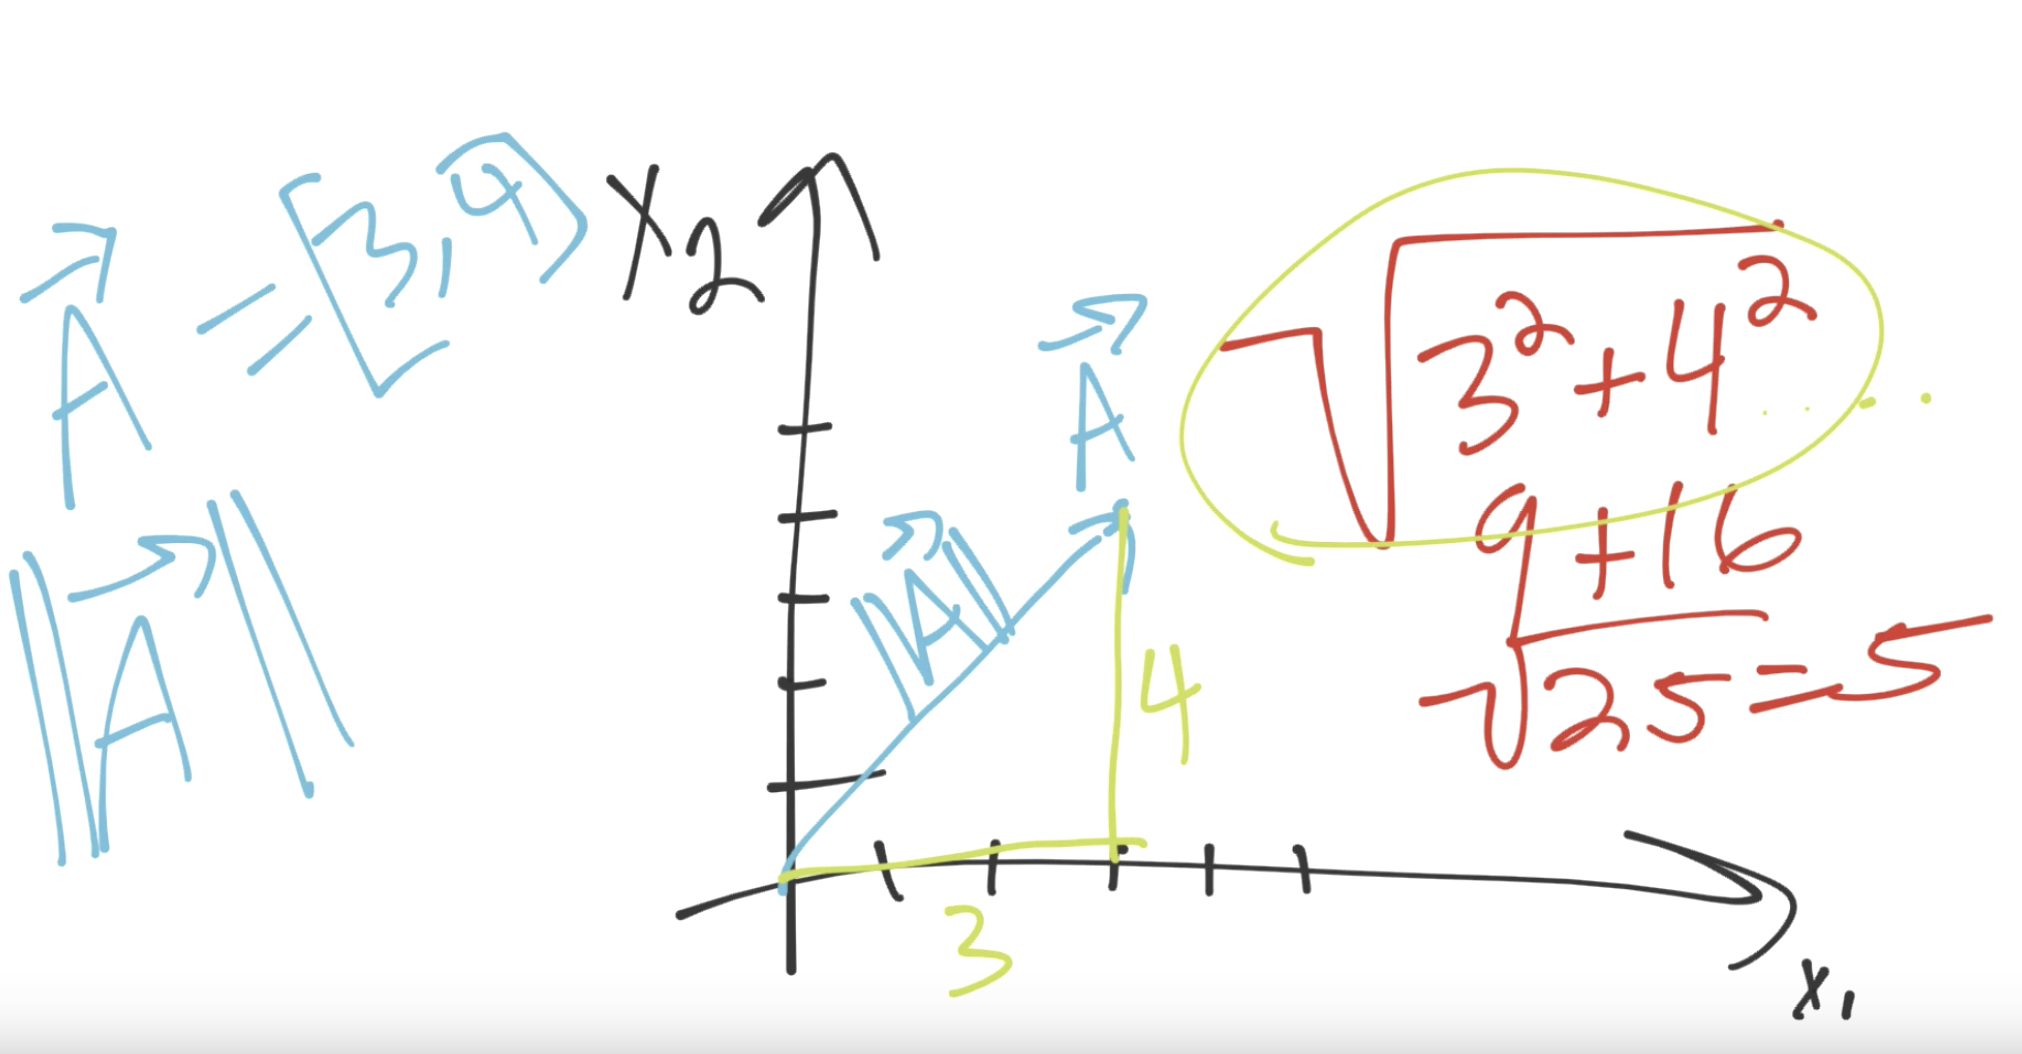 A⃗ = [3, 4]
||A⃗||
X₂
A⃗
||A⃗||
4
3
X₁
√3² + 4²
9 + 16
√25 = 5